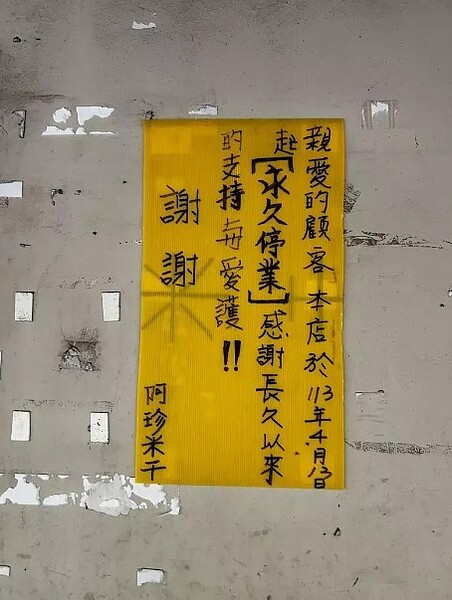 親愛的顧客 本店於113年4月13日
起【永久停業】感謝長久以來
的支持与愛護!!
謝謝
阿珍米干